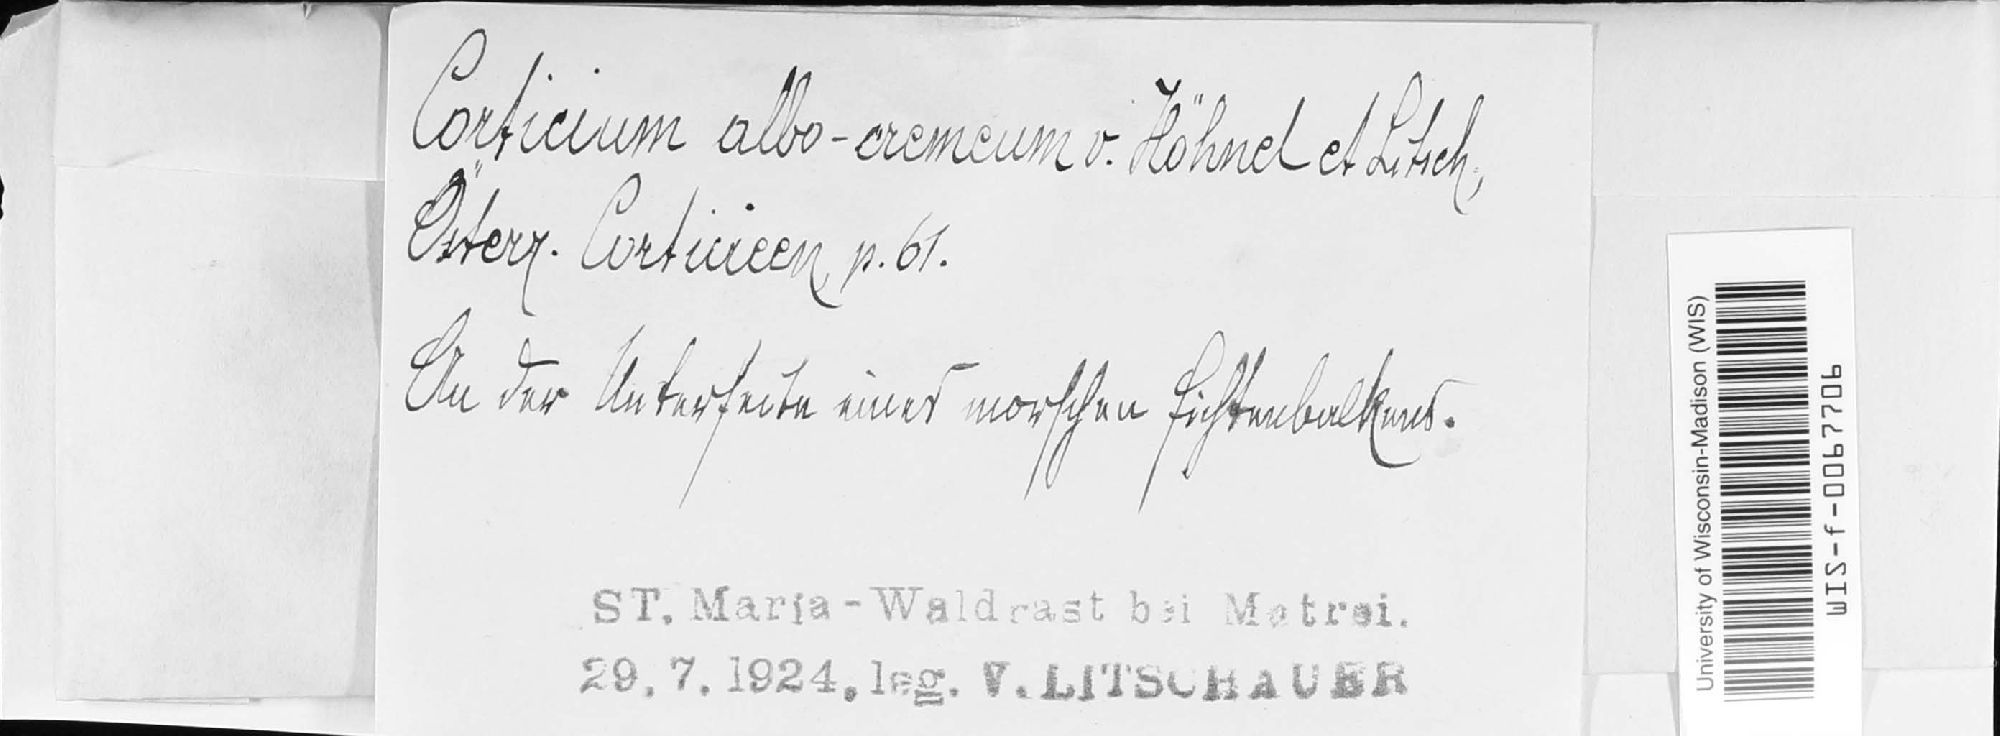 Corticium albo-cremeum v. Höhnel et Litsch.,
Österr. Corticieen, p. 61.
An der Unterseite eines morschen Fichtenbalkens.
ST. Maria-Waldrast bei Matrei.
29.7.1924. leg. V. LITSCHAUER
University of Wisconsin-Madison (WIS)
WIS-f-0067706